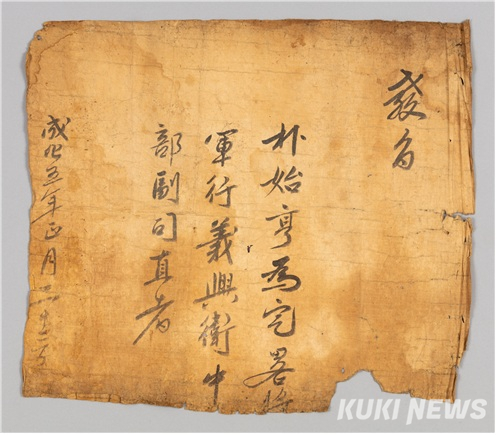 敎旨
朴始亨爲定畧將
軍行義興衛中
部副司直者
成化五年正月二十二日
KUKI NEWS